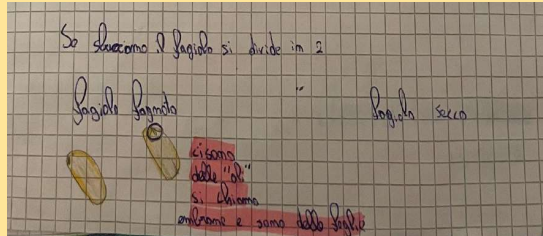 So sbucciamo il fagiolo si divide in 2
"
fagiolo bagnato
fagiolo secco
ci sono
delle "ali"
si chiama
embrione e sono delle foglie